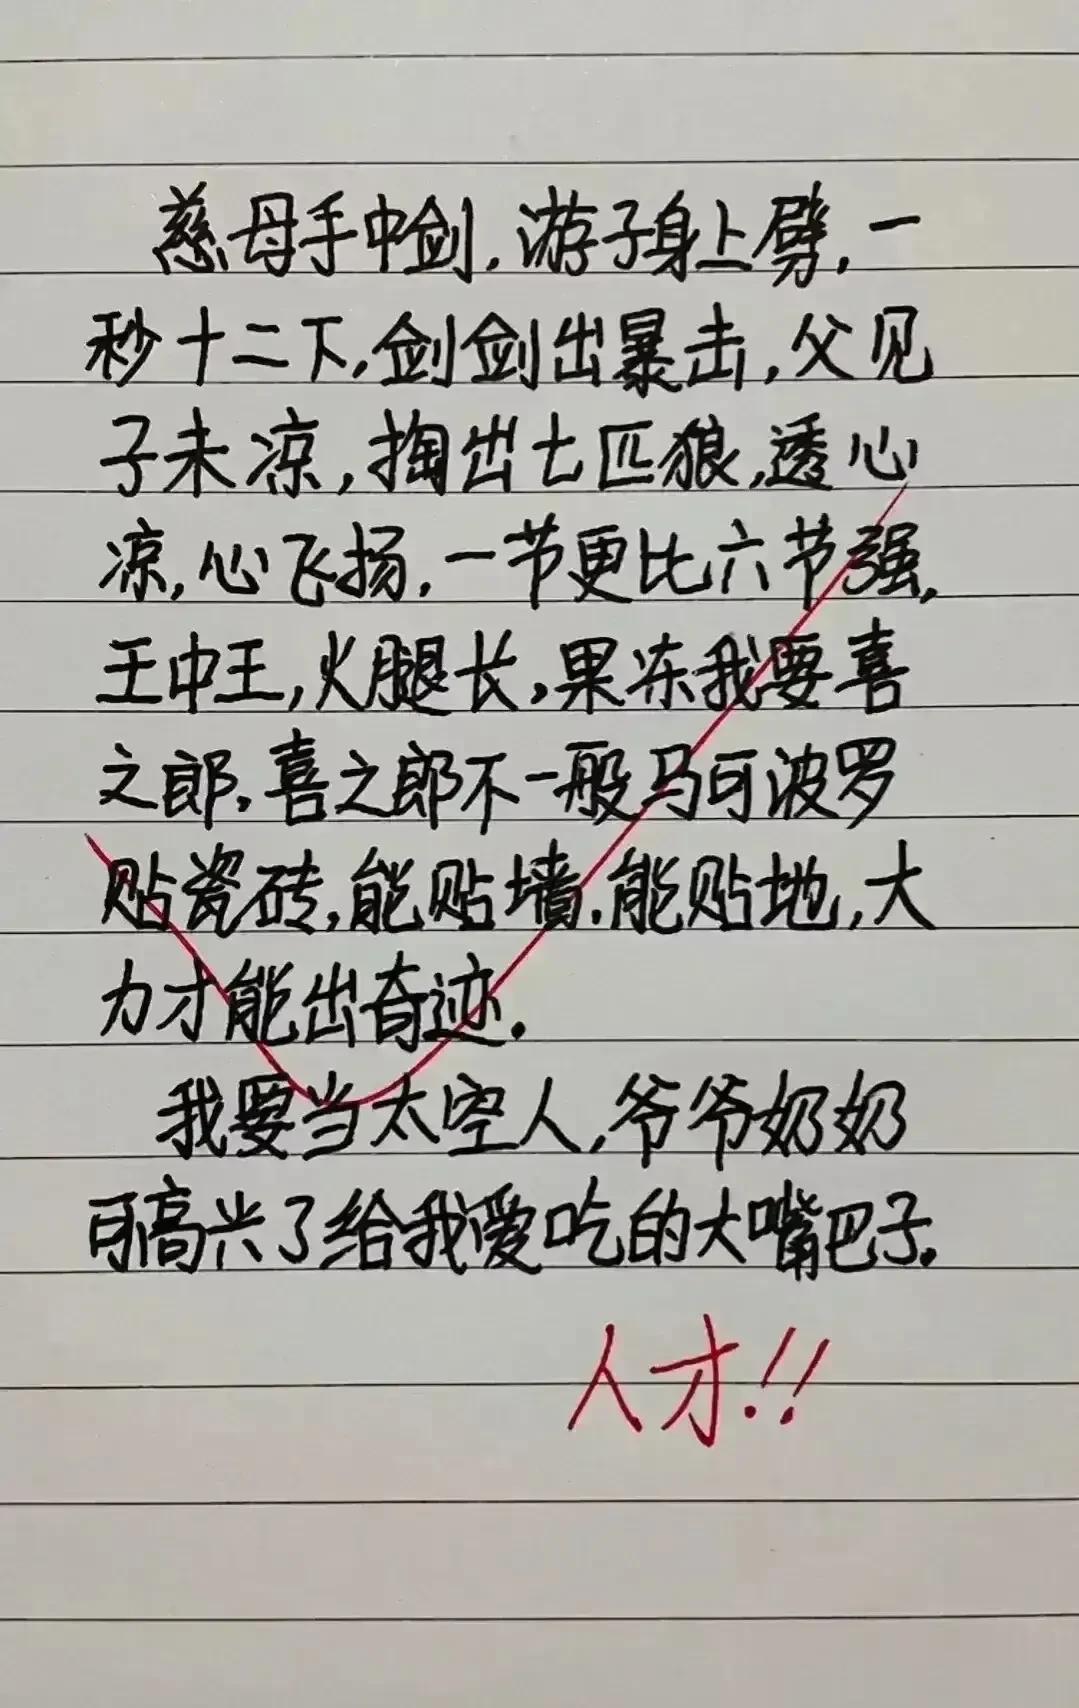 慈母手中剑,游子身上劈,一
秒十二下,剑剑出暴击,父见
子未凉,掏出七匹狼,透心
凉,心飞扬,一节更比六节强,
王中王,火腿长,果冻我要喜
之郎,喜之郎不一般马可波罗
贴瓷砖,能贴墙.能贴地,大
力才能出奇迹.
我要当太空人,爷爷奶奶
可高兴了给我爱吃的大嘴巴子.
人才!!